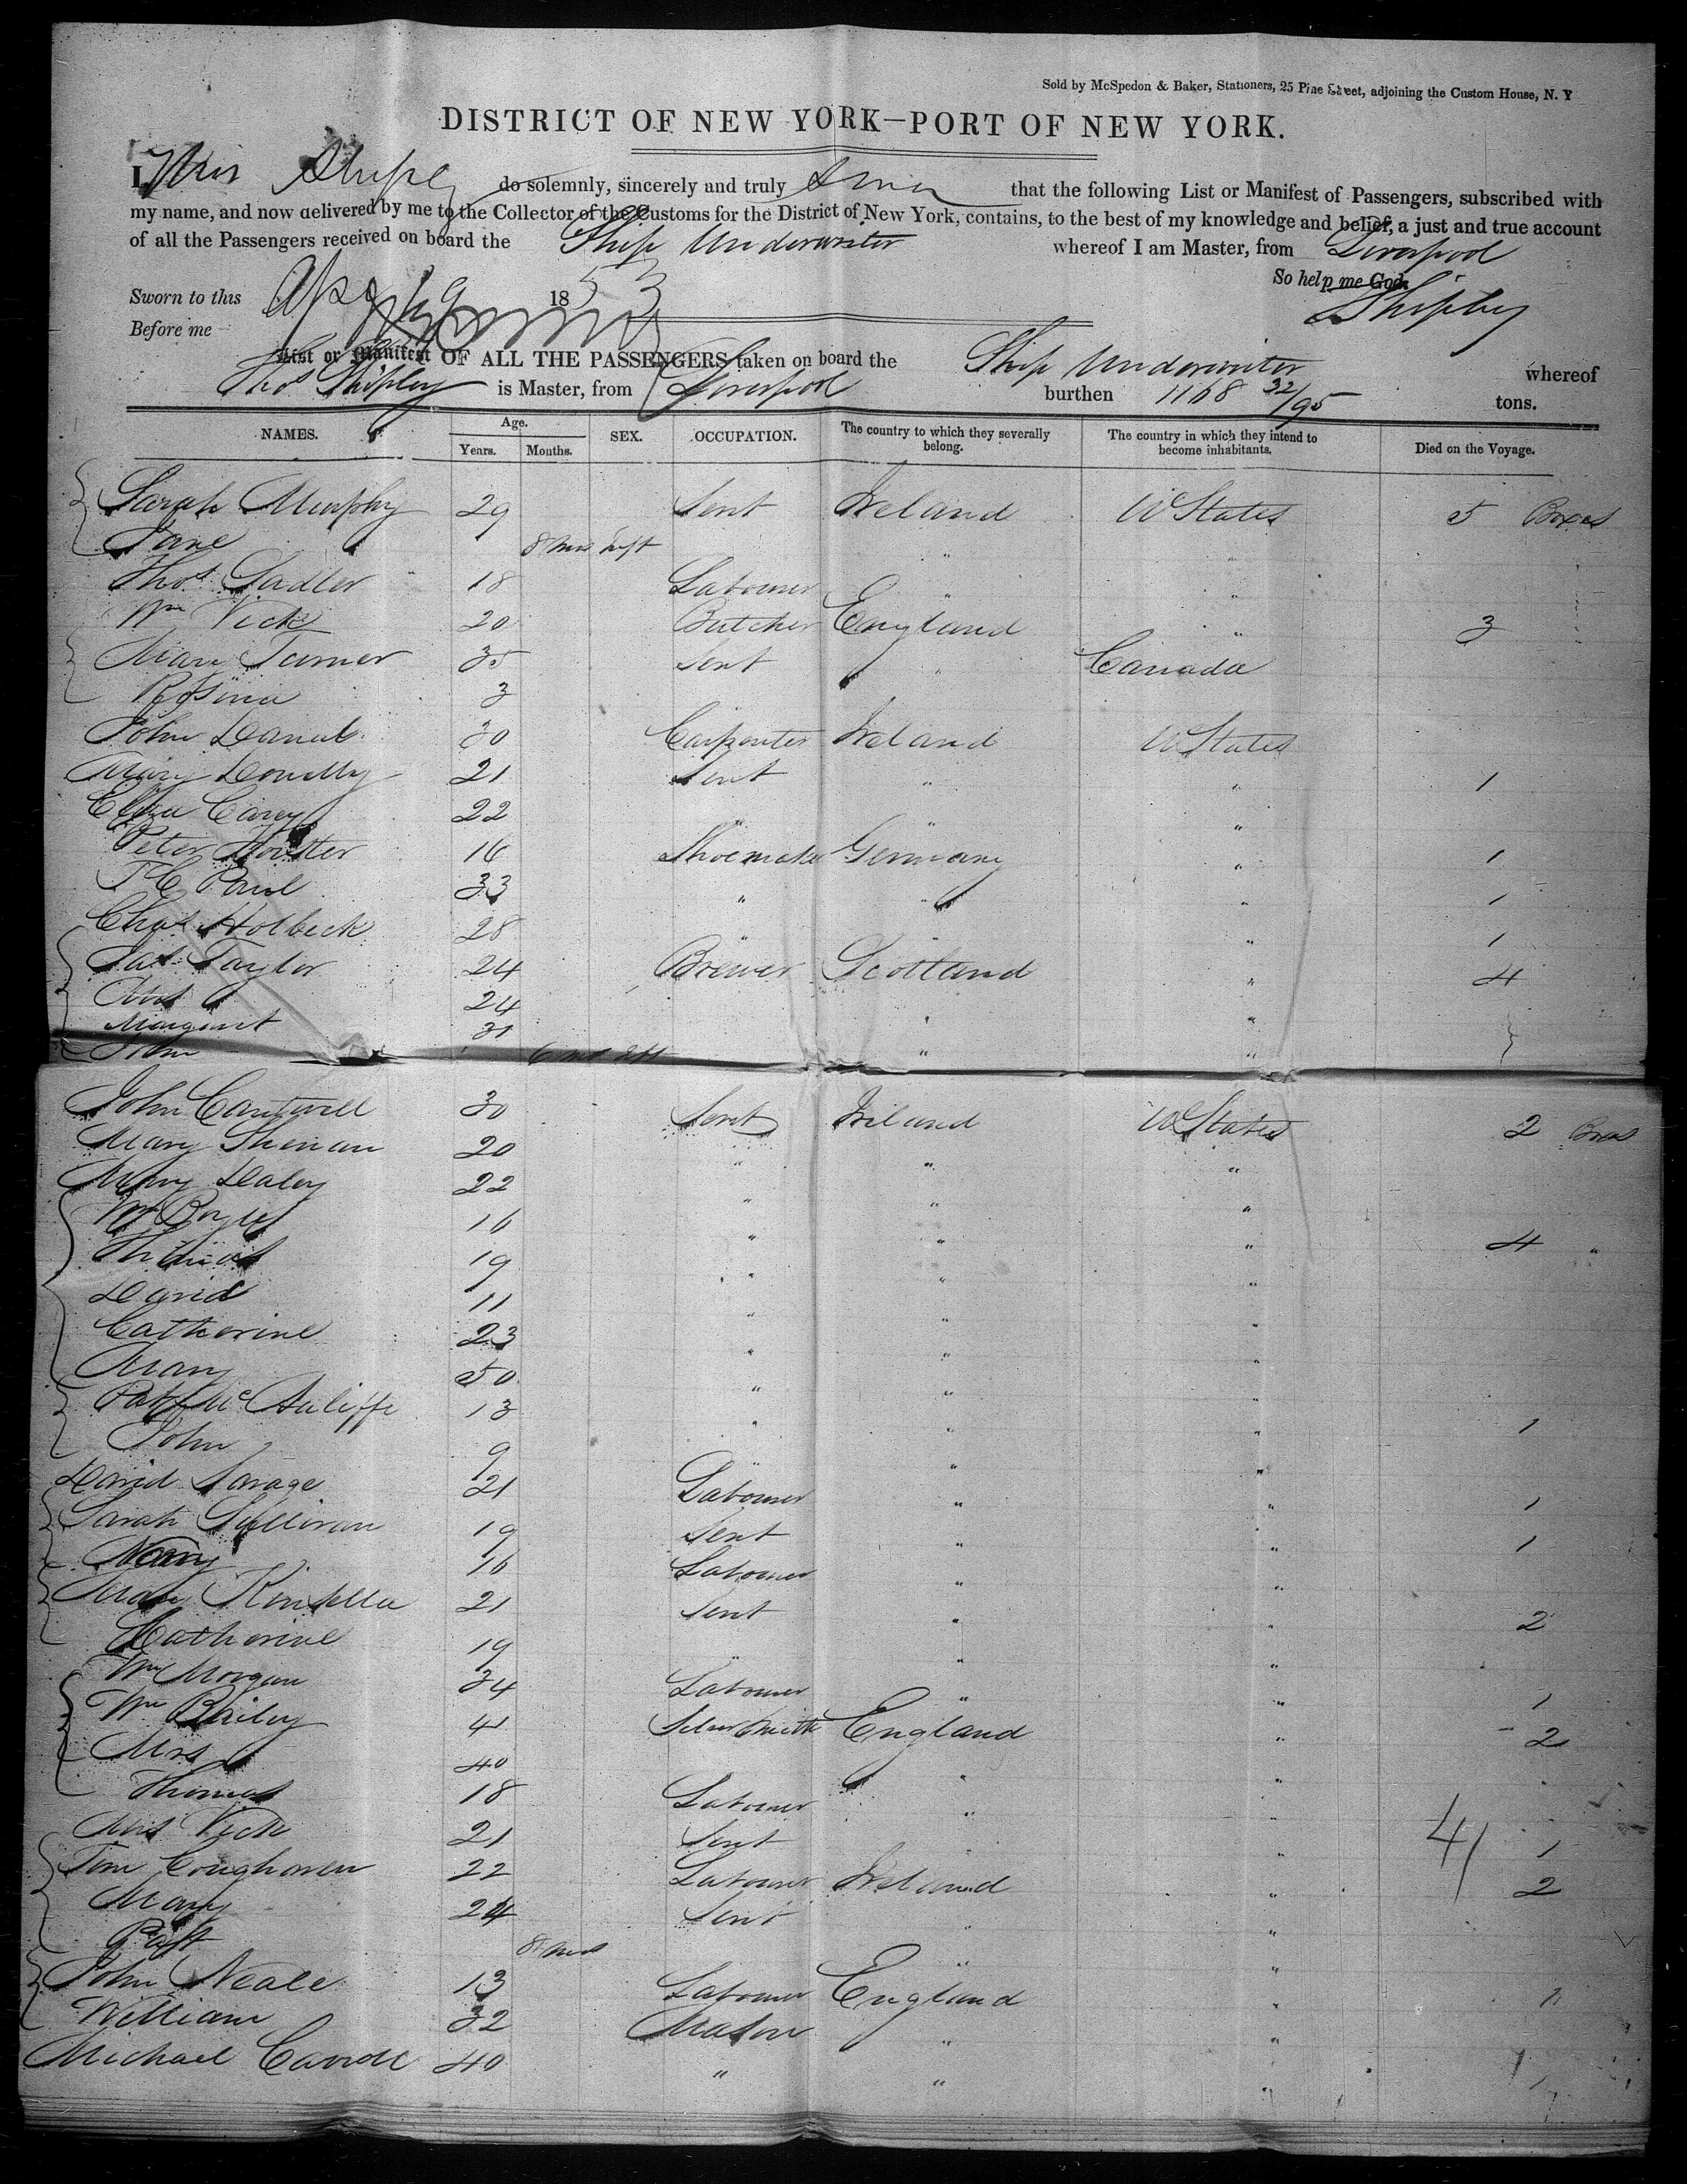 Sold by McSpedon & Baker, Stationers, 25 Pine Street, adjoining the Custom House, N. Y
DISTRICT OF NEW YORK—PORT OF NEW YORK.
I, Thos Shipley do solemnly, sincerely and truly Swear that the following List or Manifest of Passengers, subscribed with
my name, and now delivered by me to the Collector of the Customs for the District of New York, contains, to the best of my knowledge and belief, a just and true account
of all the Passengers received on board the Ship Underwriter whereof I am Master, from Liverpool
So help me God.
Sworn to this 1853 Shipley
Before me
List or Manifest OF ALL THE PASSENGERS taken on board the Ship Underwriter whereof
Thos Shipley is Master, from Liverpool burthen 1168 32/95 tons.
NAMES. Age. Years. Months. SEX. OCCUPATION. The country to which they severally belong. The country in which they intend to become inhabitants. Died on the Voyage.
Sarah Murphy 29 Sevt Ireland U States 5 Boxes
Jane 8 mos "
Thos Sadler 18 Labourer " "
Wm Vick 20 Butcher England " 3
Mary Turner 35 Sevt " Canada
Rosina 3
John Daniel 30 Carpenter Ireland U States
Mary Donelly 21 Sevt " " 1
Eliza Carey 22 " " "
Peter 16 Shoemaker Germany " 1
J C Paul 33 " " " 1
Chas Holbeck 28 " " " 1
Jas Taylor 24 Brewer Scotland " 4
Mrs 24 "
Margaret 31 " "
John 6 mos " "
John Cantwell 30 Sevt Ireland U States 2 Boxes
Mary 20 " " "
Mary Daley 22 " " "
Wm Boyle 16 " " " 4 "
Thomas 19 " " "
David 11 " " "
Catherine 23 " " "
Mary 50 " " "
Patk McAuliffe 13 " " " 1
John 9 " " "
David Savage 21 Labourer " " 1
Sarah Sullivan 19 Sevt " " 1
16 Labourer " "
Mary Kinsella 21 Sevt " " 2
Catherine 19 " " "
Wm Morgan 34 Labourer " " 1
Wm Bailey 41 Silversmith England " 2
Mrs 40 " "
Thomas 18 Labourer " "
Mrs Vick 21 Sevt " " 41 1
Tim 22 Labourer Ireland " 2
Mary 24 Sevt " "
8 mos " "
John Neale 13 Labourer England " 1
William 32 Mason " "
Michael Carroll 40 " " " 1